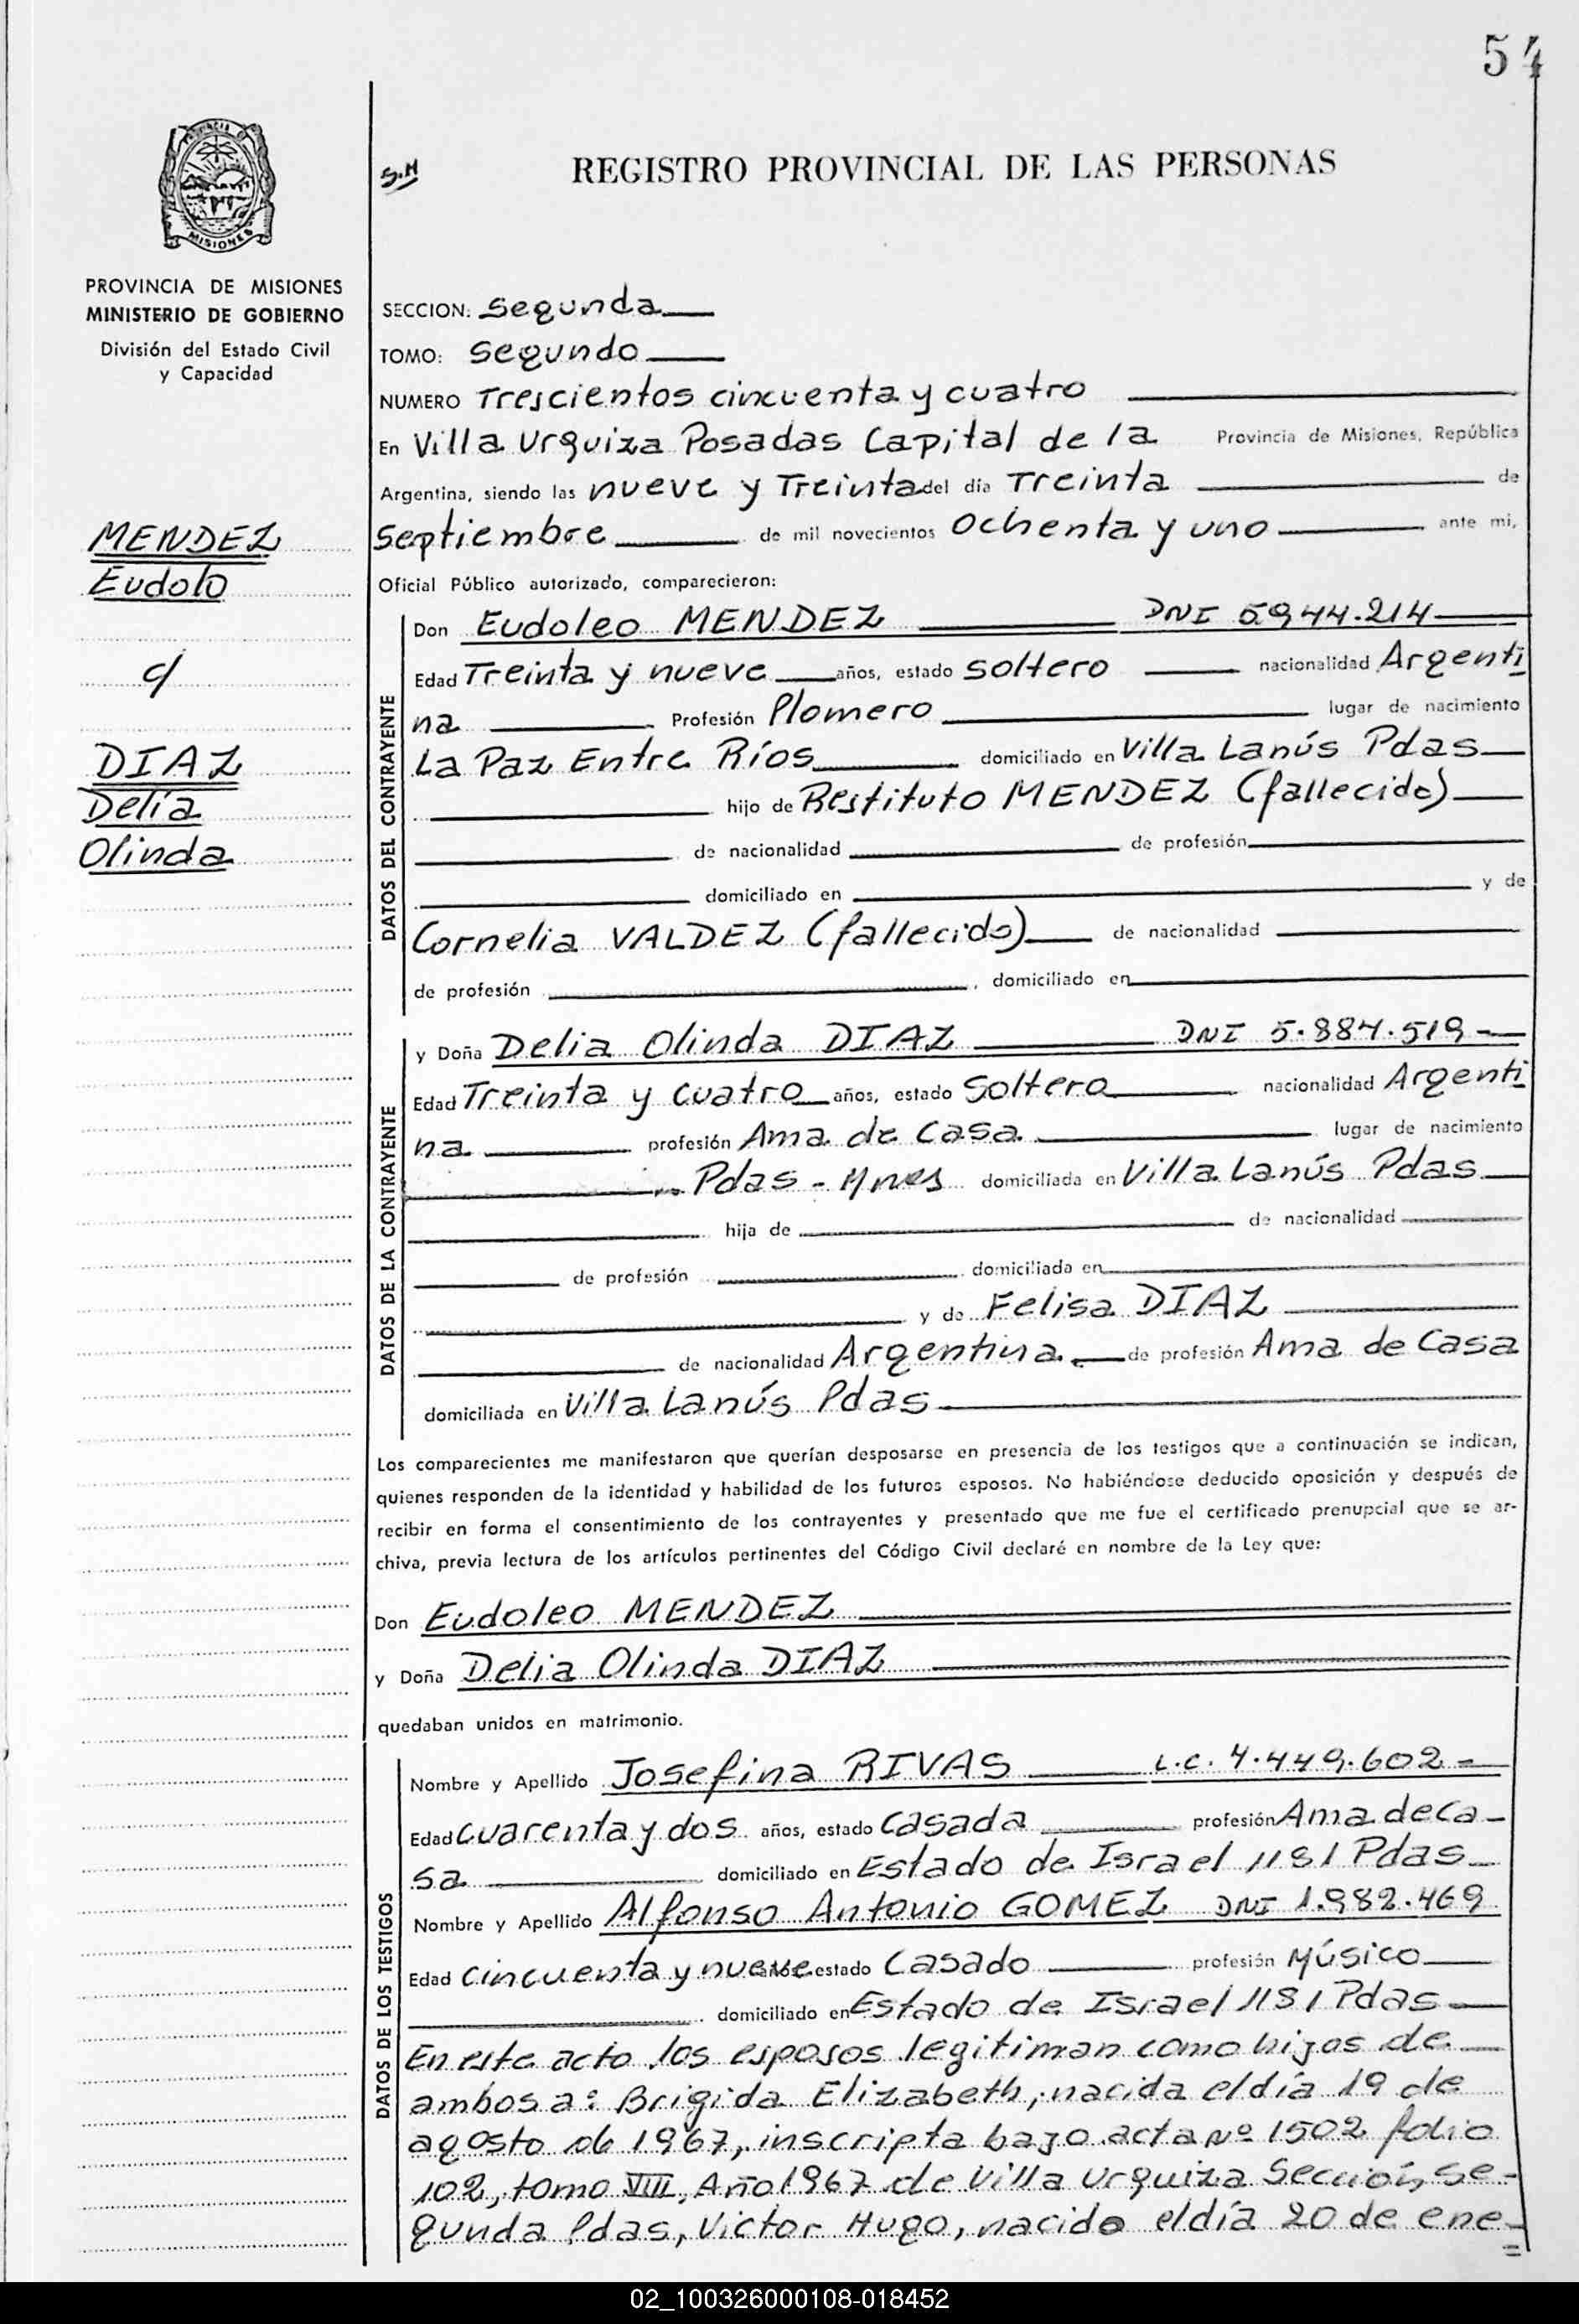 54
MISIONES
S.H
REGISTRO PROVINCIAL DE LAS PERSONAS
PROVINCIA DE MISIONES
MINISTERIO DE GOBIERNO
División del Estado Civil
y Capacidad
SECCION: Segunda
TOMO: Segundo
NUMERO Trescientos cincuenta y cuatro
En Villa Urquiza Posadas Capital de la Provincia de Misiones, República
Argentina, siendo las nueve y Treinta del día Treinta de
Septiembre de mil novecientos Ochenta y uno ante mi,
Oficial Público autorizado, comparecieron:
MENDEZ
Eudolo
c/
DIAZ
Delia
Olinda
DATOS DEL CONTRAYENTE
Don Eudoleo MENDEZ DNI 5.944.214
Edad Treinta y nueve años, estado soltero nacionalidad Argenti
na Profesión Plomero lugar de nacimiento
La Paz Entre Ríos domiciliado en Villa Lanús Pdas
hijo de Restituto MENDEZ (fallecido)
de nacionalidad de profesión
domiciliado en y de
Cornelia VALDEZ (fallecido) de nacionalidad
de profesión , domiciliado en
DATOS DE LA CONTRAYENTE
y Doña Delia Olinda DIAZ DNI 5.884.519-
Edad Treinta y cuatro años, estado Soltera nacionalidad Argenti
na profesión Ama de Casa lugar de nacimiento
Pdas - Mnes domiciliada en Villa Lanús Pdas
hija de de nacionalidad
de profesión domiciliada en
y de Felisa DIAZ
de nacionalidad Argentina de profesión Ama de Casa
domiciliada en Villa Lanús Pdas
Los comparecientes me manifestaron que querían desposarse en presencia de los testigos que a continuación se indican,
quienes responden de la identidad y habilidad de los futuros esposos. No habiéndose deducido oposición y después de
recibir en forma el consentimiento de los contrayentes y presentado que me fue el certificado prenupcial que se ar-
chiva, previa lectura de los artículos pertinentes del Código Civil declaré en nombre de la Ley que:
Don Eudoleo MENDEZ
y Doña Delia Olinda DIAZ
quedaban unidos en matrimonio.
DATOS DE LOS TESTIGOS
Nombre y Apellido Josefina RIVAS L.C. 4.449.602-
Edad Cuarenta y dos años, estado Casada profesión Ama de Ca-
sa domiciliado en Estado de Israel 1181 Pdas
Nombre y Apellido Alfonso Antonio GOMEZ DNI 1.982.469
Edad Cincuenta y nueve años, estado Casado profesión Músico
domiciliado en Estado de Israel 1181 Pdas
En este acto los esposos legitiman como hijos de
ambos a: Brigida Elizabeth, nacida el día 19 de
agosto de 1967, inscripta bajo acta Nº 1502 folio
102, tomo VIII, Año 1967 de Villa Urquiza Sección Se-
gunda Pdas, Victor Hugo, nacido el día 20 de ene-
02_100326000108-018452